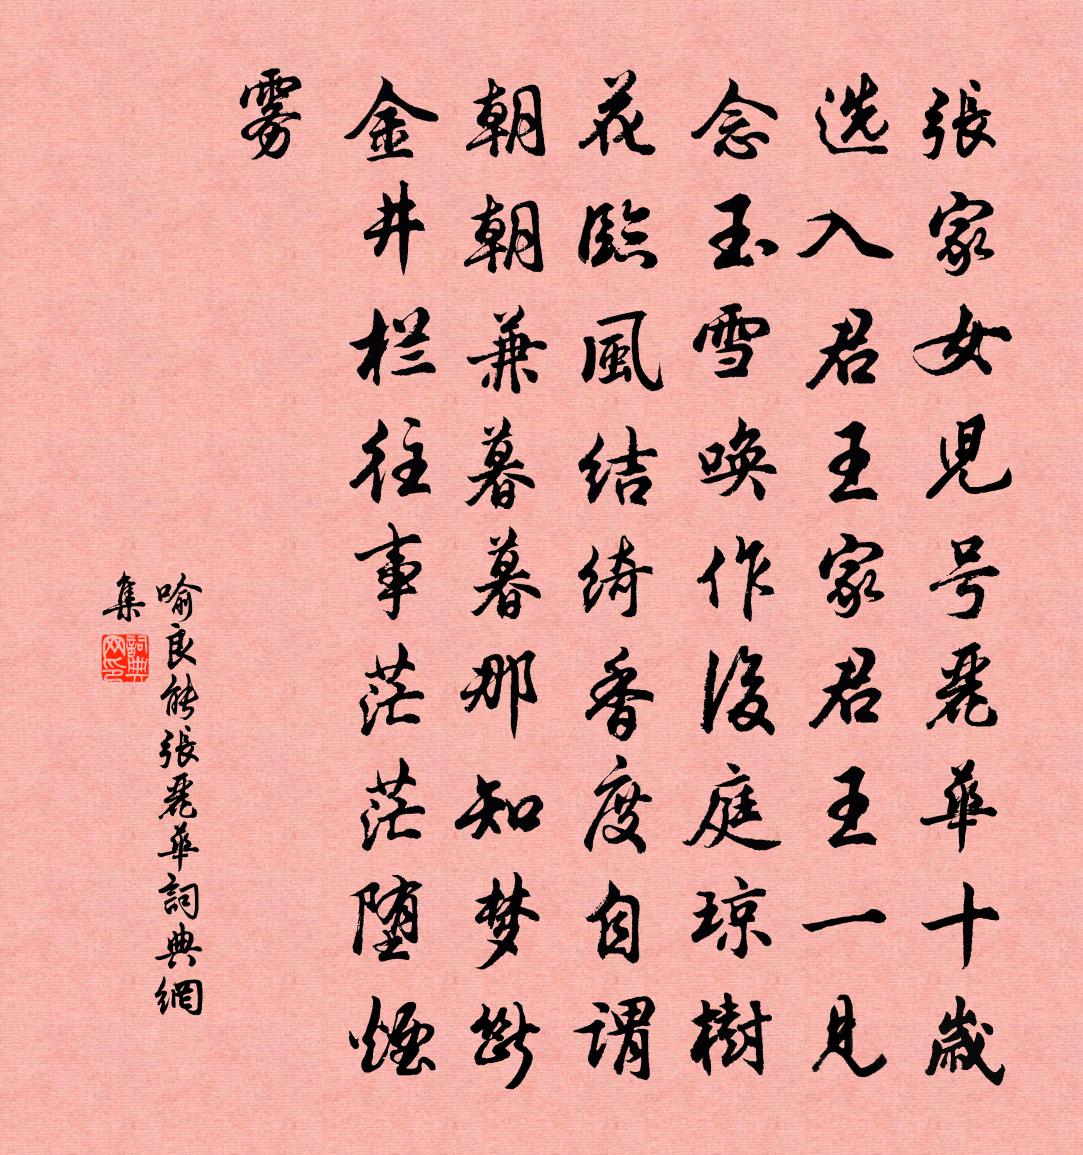 張家女児号麗華十歳
选入君王家君王一見
念玉雪唤作後庭琼樹
花臨風结绮香度自谓
朝朝兼暮暮那知梦断
金井栏往事茫茫堕煙
雾
喻良能張麗華詞典網
集
詞典
网印